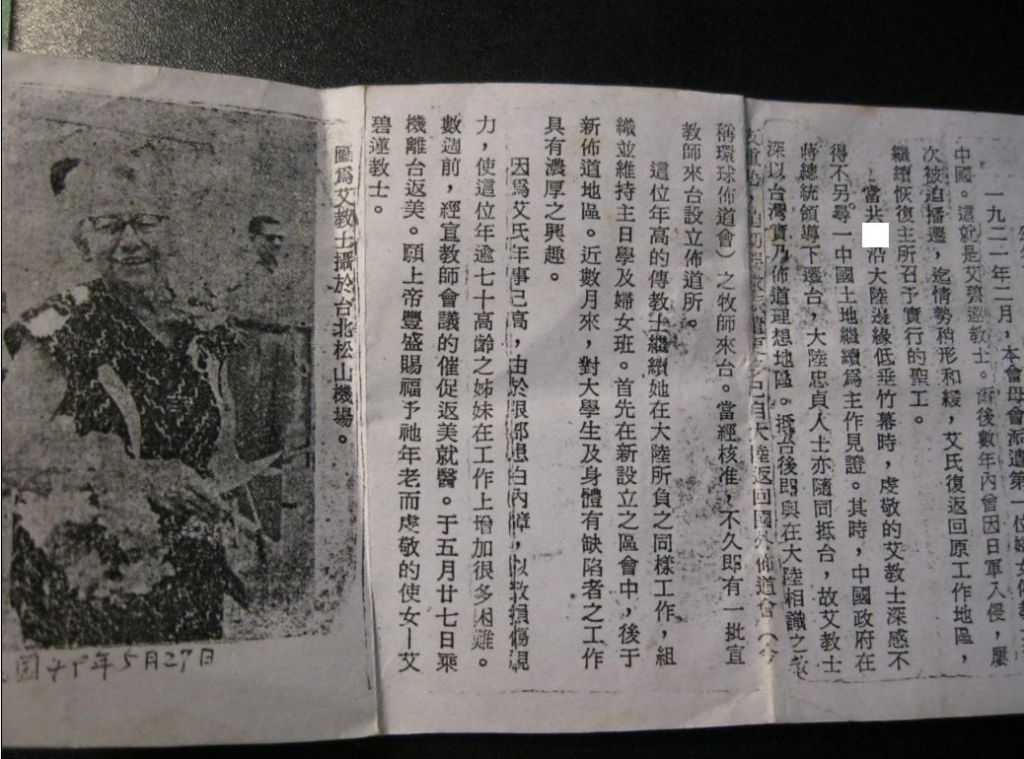 一九二一年二月，本會母會派遣第一位婦女佈教士
中國。這就是艾碧蓮教士。而後數年內曾因日軍入侵，屢
次被迫播遷，迄情勢稍形和緩，艾氏復返回原工作地區，
繼續恢復主所召予實行的聖工。
當共 沿大陸邊緣低垂竹幕時，虔敬的艾教士深感不
得不另尋一中國土地繼續爲主作見證。其時，中國政府在
蔣總統領導下遷台，大陸忠貞人士亦隨同抵台，故艾教士
深以台灣實乃佈道理想地區。抵台後即與在大陸相識之
已自大陸返回國外佈道會（今
稱環球佈道會）之牧師來台。當經核准，不久即有一批宣
教師來台設立佈道所。
這位年高的傳教士繼續她在大陸所負之同樣工作，組
織並維持主日學及婦女班。首先在新設立之區會中，後于
新佈道地區。近數月來，對大學生及身體有缺陷者之工作
具有濃厚之興趣。
因爲艾氏年事已高，由於眼部患白內障，以致損傷視
力，使這位年逾七十高齡之姊妹在工作上增加很多困難。
數週前，經宣教師會議的催促返美就醫。于五月廿七日乘
機離台返美。願上帝豐盛賜福予祂年老而虔敬的使女—艾
碧蓮教士。
圖爲艾教士攝於台北松山機場。
国 年5月27日